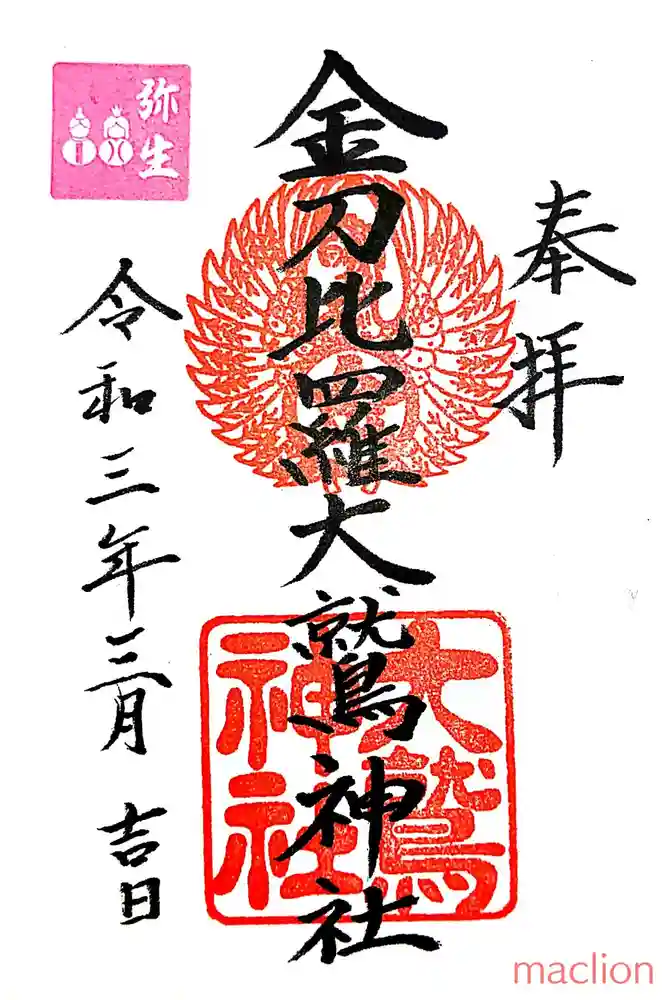 奉拝
金刀比羅大鷲神社
大鷲
神社
令和三年三月 吉日
弥生
maclion